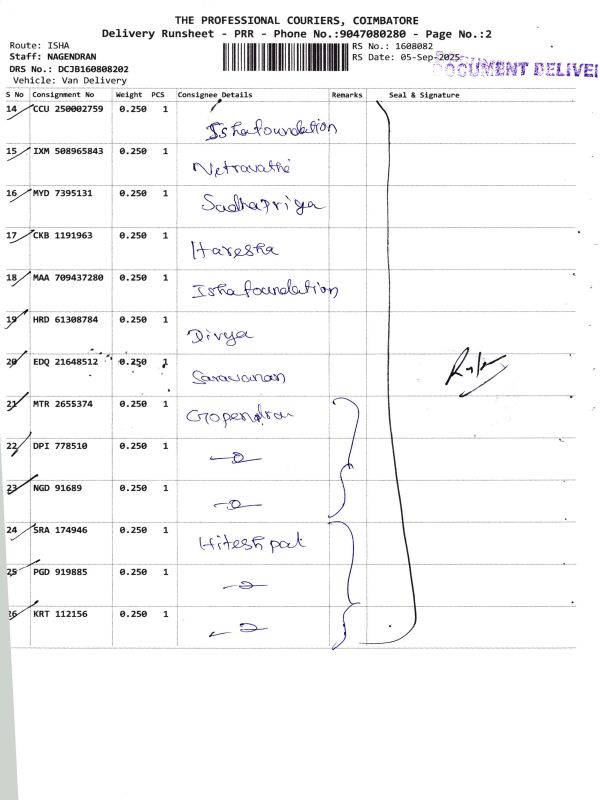 THE PROFESSIONAL COURIERS, COIMBATORE
Delivery Runsheet - PRR - Phone No.:9047080280 - Page No.:2
Route: ISHA
RS No.: 1608082
Staff: NAGENDRAN
RS Date: 05-Sep-2025
DOCUMENT DELIVE
DRS No.: DCJB160808202
Vehicle: Van Delivery
S No Consignment No Weight PCS Consignee Details Remarks Seal & Signature
14 CCU 250002759 0.250 1
Isha foundation
15 IXM 508965843 0.250 1
Netravathi
16 MYD 7395131 0.250 1
Sadhapriya
17 CKB 1191963 0.250 1
Haresha
18 MAA 709437280 0.250 1
Isha foundation
19 HRD 61308784 0.250 1
Divya
20 EDQ 21648512 0.250 1
Saravanan
21 MTR 2655374 0.250 1
22 DPI 778510 0.250 1
23 NGD 91689 0.250 1
24 SRA 174946 0.250 1
Hitesh pat
25 PGD 919885 0.250 1
26 KRT 112156 0.250 1